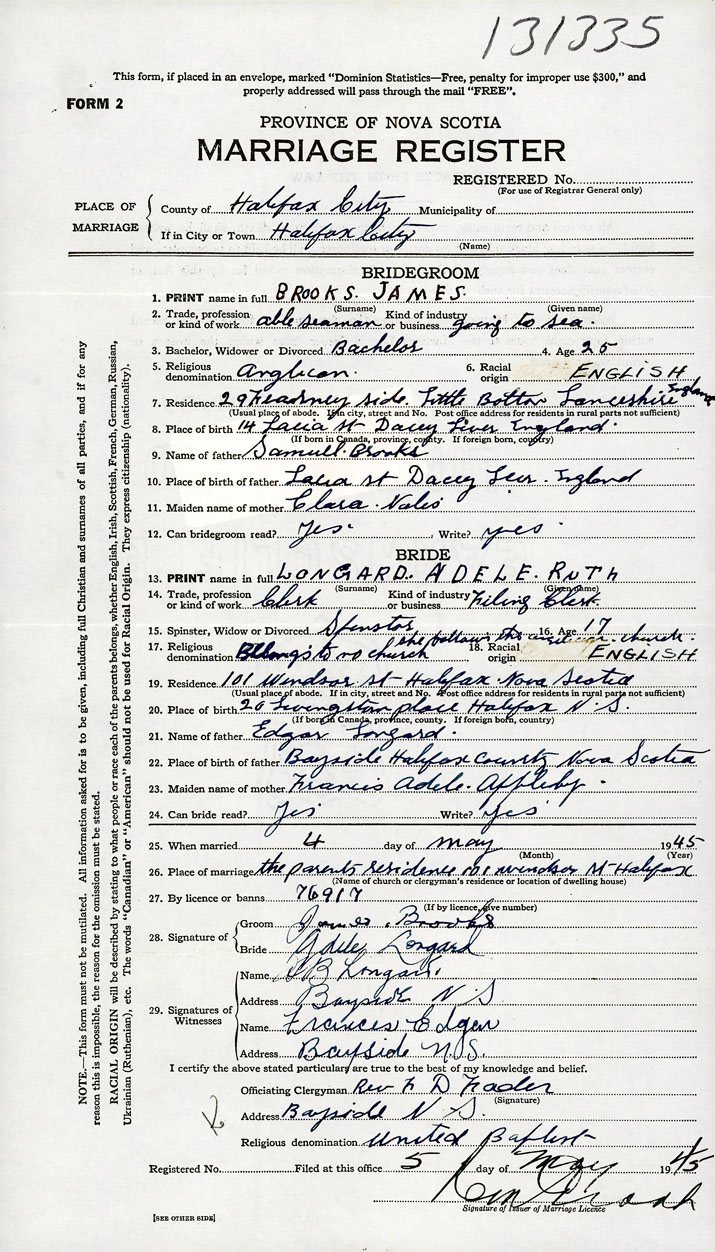 131335
This form, if placed in an envelope, marked “Dominion Statistics—Free, penalty for improper use $300,” and
properly addressed will pass through the mail “FREE”.
FORM 2
PROVINCE OF NOVA SCOTIA
MARRIAGE REGISTER
REGISTERED No.
(For use of Registrar General only)
PLACE OF MARRIAGE
County of Halifax City Municipality of
If in City or Town Halifax City
(Name)
BRIDEGROOM
1. PRINT name in full BROOKS. JAMES.
(Surname) (Given name)
2. Trade, profession or kind of work able seaman Kind of industry or business going to sea.
3. Bachelor, Widower or Divorced Bachelor 4. Age 25
5. Religious denomination Anglican. 6. Racial origin ENGLISH
7. Residence 29 Kearney side. Little Bolton Lancashire England
(Usual place of abode. If in city, street and No. Post office address for residents in rural parts not sufficient)
8. Place of birth 14 Lacia st Dacey Liver England.
(If born in Canada, province, county. If foreign born, country)
9. Name of father Samuel Brooks
10. Place of birth of father Lacia st Dacey England
11. Maiden name of mother Clara
12. Can bridegroom read? Yes. Write? yes
BRIDE
13. PRINT name in full LONGARD. ADELE. RUTH
(Surname) (Given name)
14. Trade, profession or kind of work Clerk Kind of industry or business Filing Clerk.
15. Spinster, Widow or Divorced Spinster 16. Age 17
she follows the church.
17. Religious denomination Belongs to no church 18. Racial origin ENGLISH
19. Residence 101 Windsor st Halifax Nova Scotia
(Usual place of abode. If in city, street and No. Post office address for residents in rural parts not sufficient)
20. Place of birth 20 Livingston place Halifax N.S.
(If born in Canada, province, county. If foreign born, country)
21. Name of father Edgar Longard.
22. Place of birth of father Bayside Halifax County Nova Scotia
23. Maiden name of mother Francis Adele. Appleby.
24. Can bride read? Yes Write? yes
25. When married 4 day of May 1945
(Month) (Year)
26. Place of marriage the parents residence 101 windsor st Halifax
(Name of church or clergyman's residence or location of dwelling house)
27. By licence or banns 76917
(If by licence, give number)
28. Signature of
Groom James. Brooks
Bride Adele Longard
29. Signatures of Witnesses
Name B Longard
Address Bayside N S
Name Frances Edgar
Address Bayside N.S.
I certify the above stated particulars are true to the best of my knowledge and belief.
Officiating Clergyman Rev F D Trader
(Signature)
Address Bayside N. S.
Religious denomination United Baptist
Registered No. Filed at this office 5 day of May 1945
Signature of Issuer of Marriage Licence
[SEE OTHER SIDE]
NOTE.—This form must not be mutilated. All information asked for is to be given, including full Christian and surnames of all parties, and if for any
reason this is impossible, the reason for the omission must be stated.
RACIAL ORIGIN will be described by stating to what people or race each of the parents belongs, whether English, Irish, Scottish, French, German, Russian,
Ukrainian (Ruthenian), etc. The words “Canadian” or “American” should not be used for Racial Origin. They express citizenship (nationality).